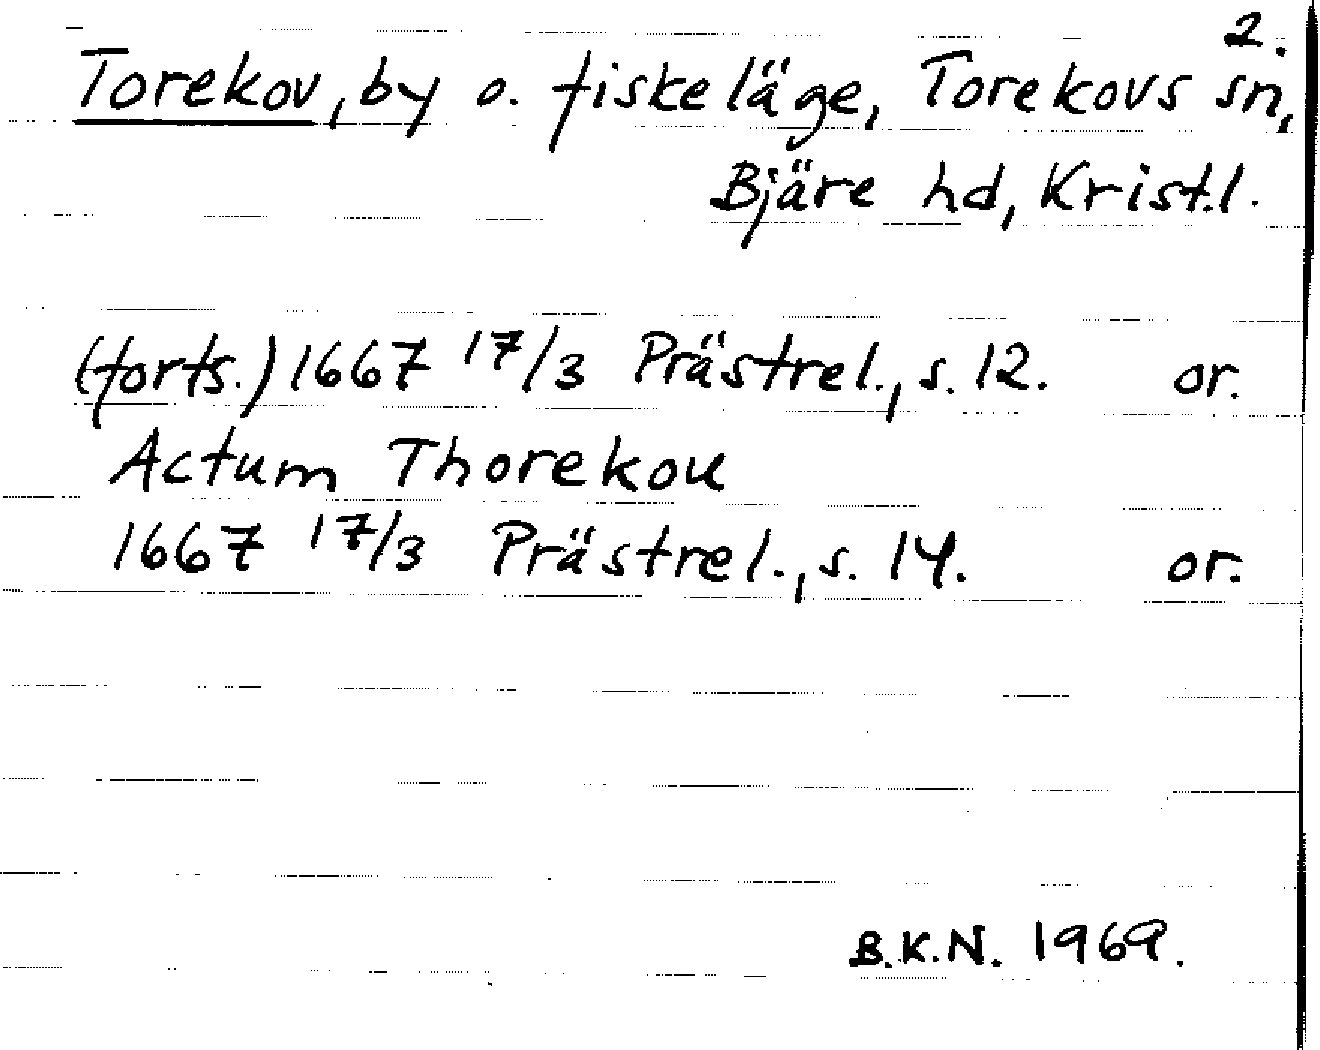 2.
Torekov, by o. fiskeläge, Torekovs sn,
Bjäre hd, Kristl.
(forts.) 1667 17/3 Prästrel., s. 12. or.
Actum Thorekou
1667 17/3 Prästrel., s. 14. or.
B.K.N. 1969.